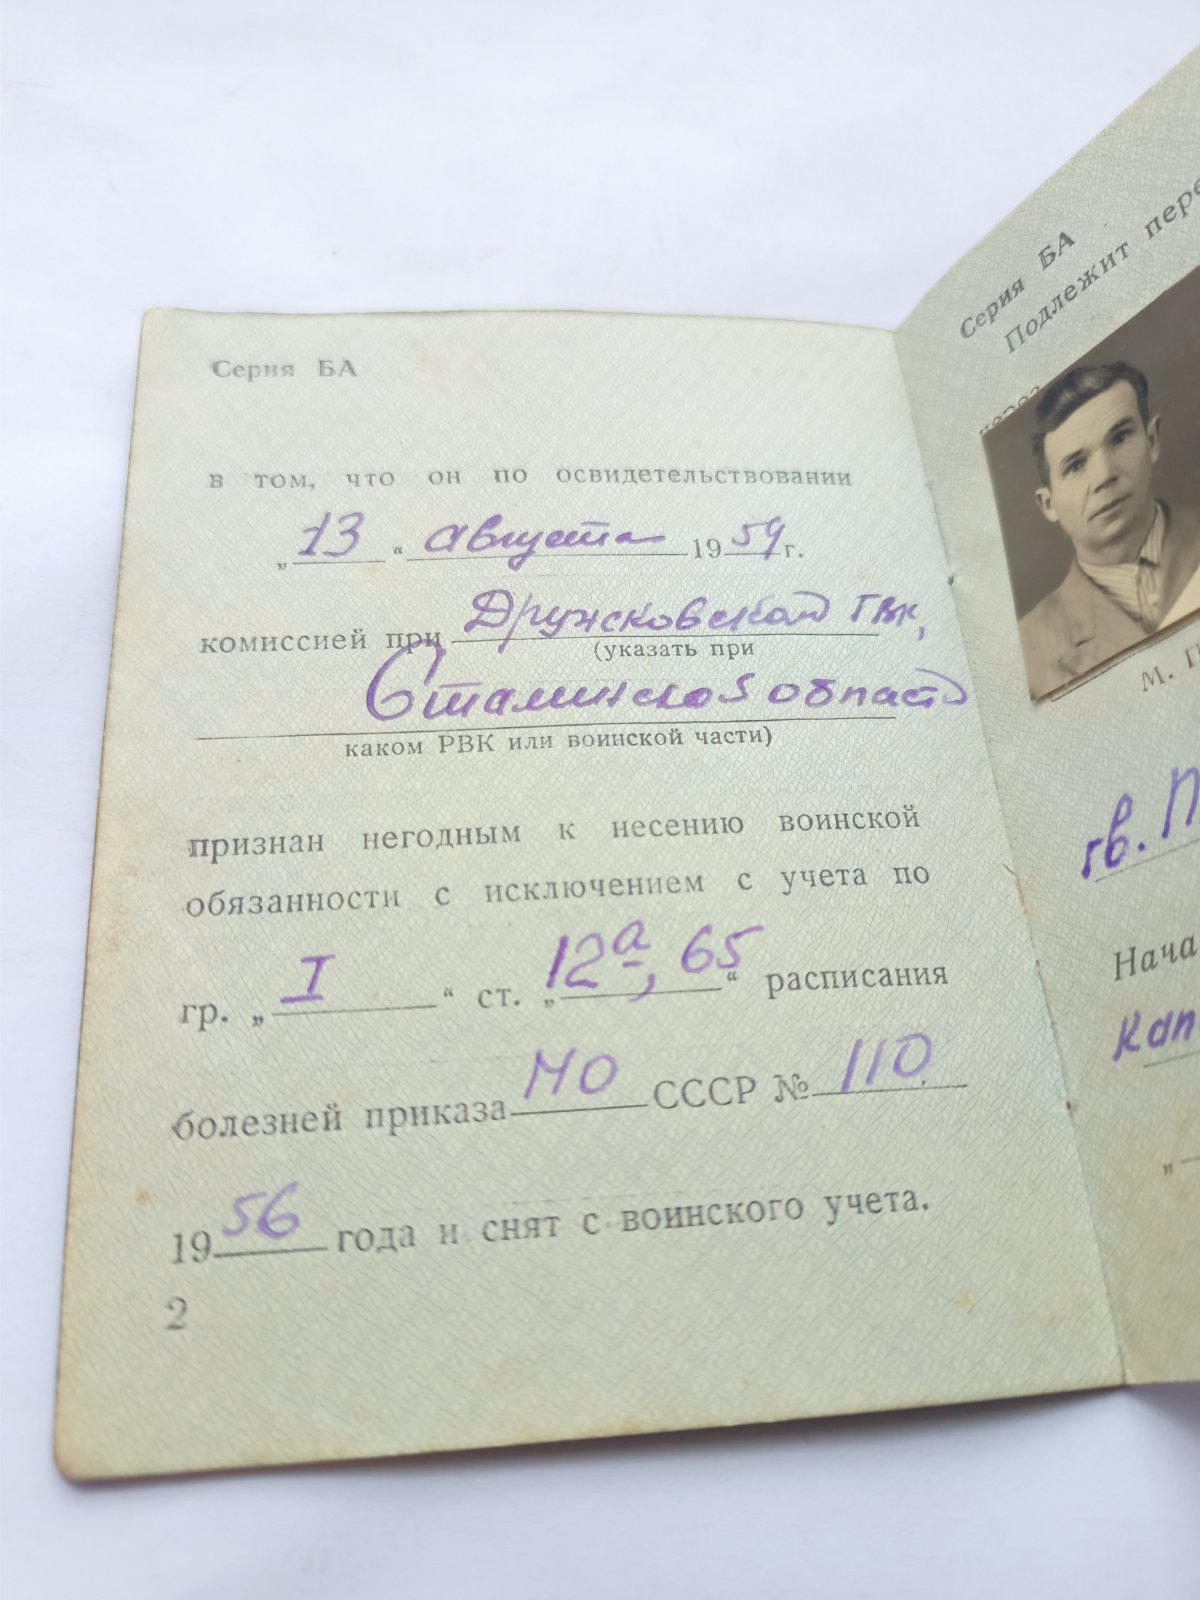 Серия БА
в том, что он по освидетельствовании
„ 13 “ августа 1959 г.
комиссией при Дружковском ГВК,
(указать при
Сталинской област
каком РВК или воинской части)
признан негодным к несению воинской
обязанности с исключением с учета по
гр. „ I “ ст. „ 12а, 65 “ расписания
болезней приказа МО СССР № 110
1956 года и снят с воинского учета.
2
Серия БА
Подлежит пере
через
М. П
гв. П
Нача
Кап
„